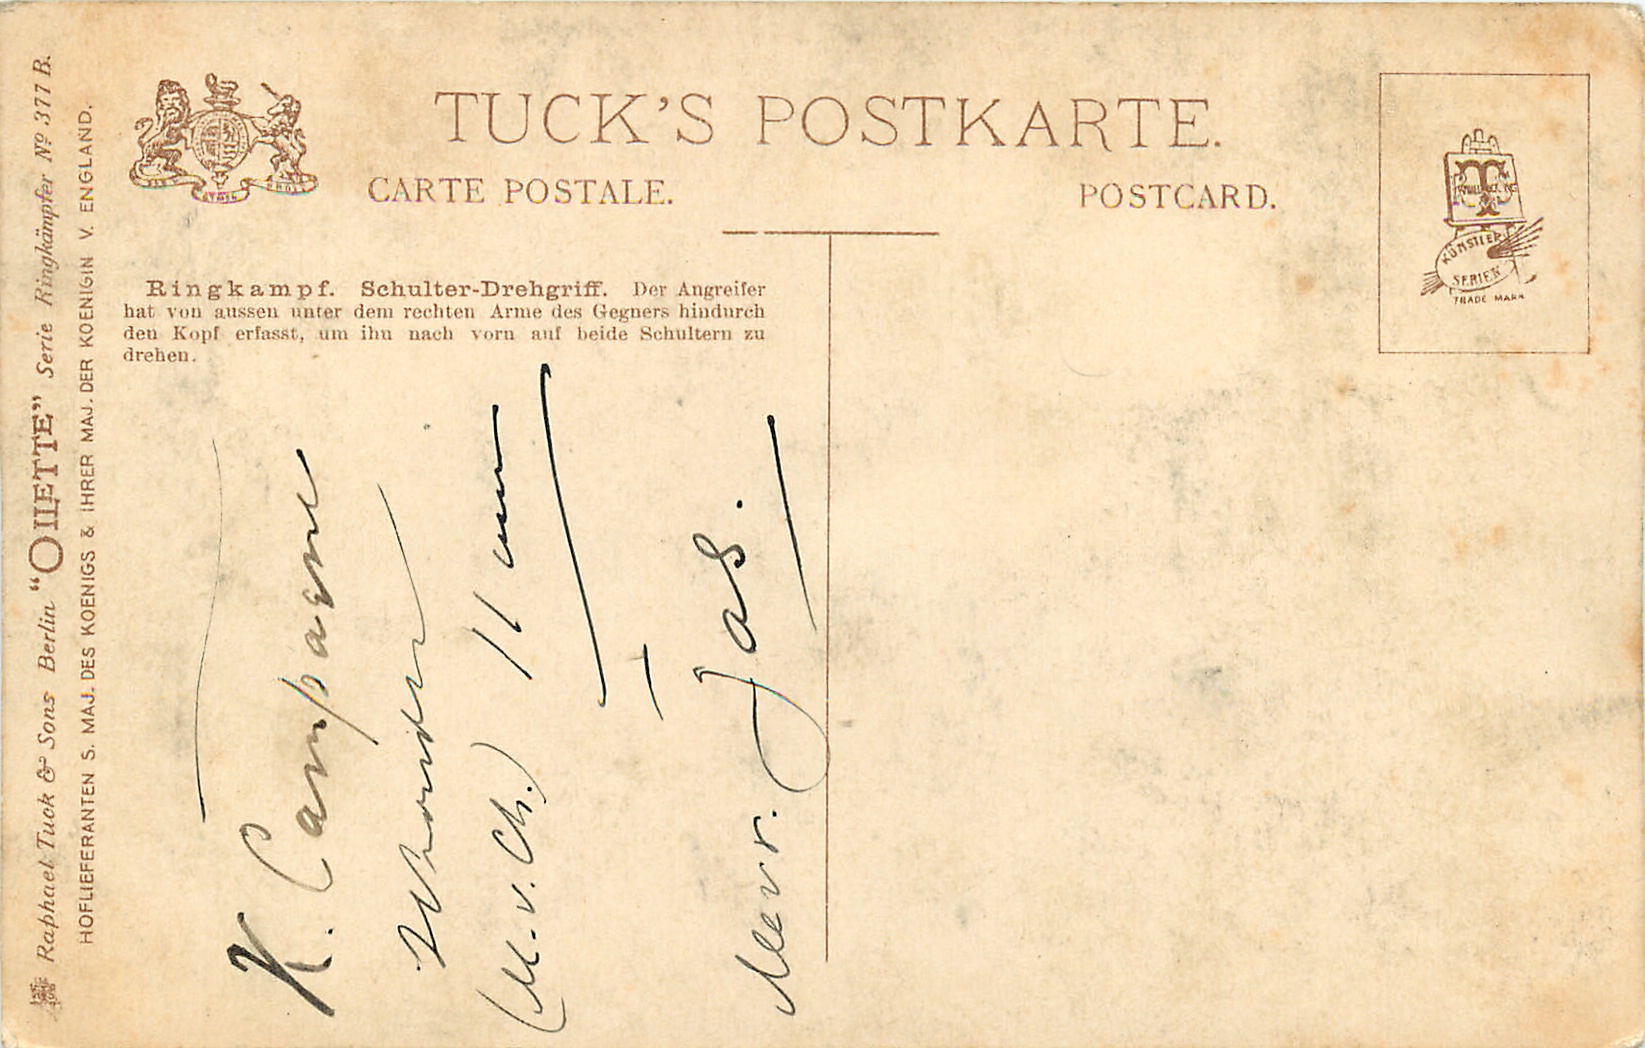 Raphael Tuck & Sons Berlin “OILETTE” Serie Ringkämpfer Nº 377 B.
HOFLIEFERANTEN S. MAJ. DES KOENIGS & IHRER MAJ. DER KOENIGIN V. ENGLAND.
TUCK'S POSTKARTE.
CARTE POSTALE. POSTCARD.
KÜNSTLER
SERIEN
TRADE MARK
Ringkampf. Schulter-Drehgriff. Der Angreifer
hat von aussen unter dem rechten Arme des Gegners hindurch
den Kopf erfasst, um ihn nach vorn auf beide Schultern zu
drehen.
K. Campagne
(M. v. Ch.) 11
Mevr. Jas.